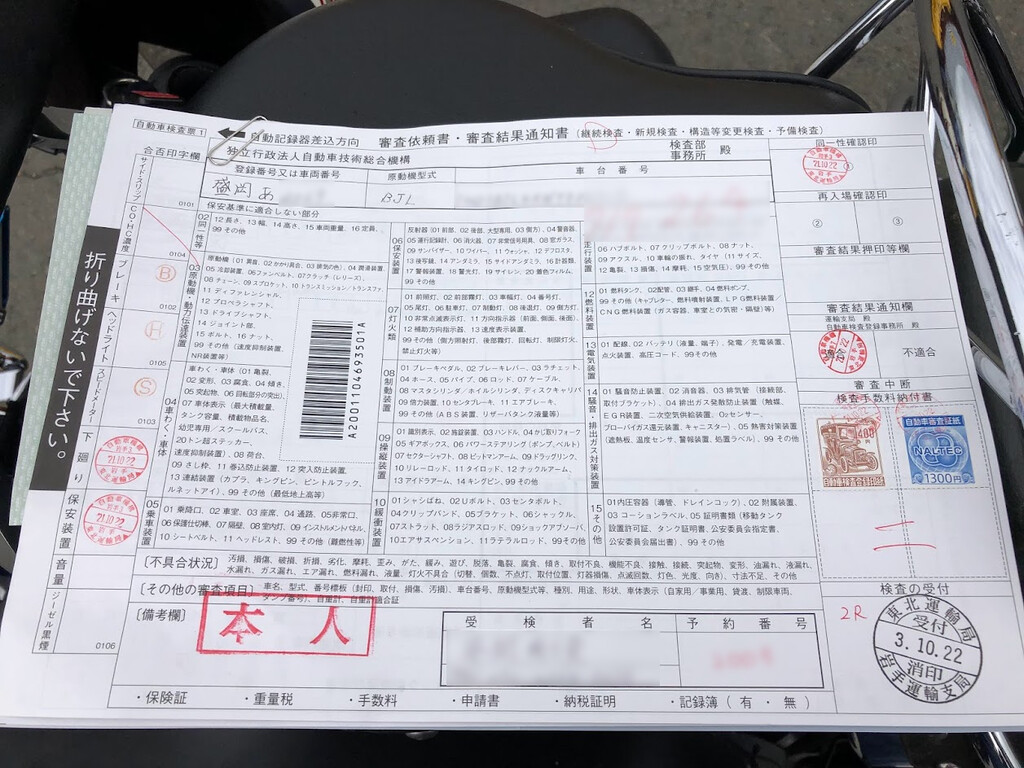 自動車検査票1
自動記録器差込方向
審査依頼書・審査結果通知書（継続検査・新規検査・構造等変更検査・予備検査）
独立行政法人自動車技術総合機構
検査部
事務所
殿
合否印字欄
登録番号又は車両番号
原動機型式
車台番号
盛岡 あ
BJL
サイドスリップ
0101
CO・HC濃度
0104
ブレーキ
B
ヘッドライト
H
0105
スピードメーター
S
0103
下廻り
保安装置
音量
ジーゼル黒煙
0106
折り曲げないで下さい。
保安基準に適合しない部分
02同一性等
12長さ、13幅、14高さ、15車両重量、16定員、
99その他
03原動機・動力伝達装置
11ディファレンシャル、
12プロペラシャフト、
13ドライブシャフト、
14ジョイント部、
15ボルト、16ナット、
99その他（速度抑制装置、
NR装置等）
04車わく・車体
車わく・車体（01亀裂、
02変形、03腐食、04傾き、
05突起物、06回転部分の突出）、
07車体表示（最大積載量、
タンク容量、積載物品名、
幼児専用／スクールバス、
20トン超ステッカー、
速度抑制装置）、08荷台、
09さし枠、11巻込防止装置、12突入防止装置、
13連結装置（カプラ、キングピン、ピントルフック、
ルネットアイ）、99その他（最低地上高等）
05乗車装置
01乗降口、02車室、03座席、04通路、05非常口、
06保護仕切棒、07隔壁、08室内灯、09インストルメントパネル、
10シートベルト、11ヘッドレスト、99その他（難燃性等）
A2001104693501A
06保安装置
反射器（01前部、02後部、大型専用、03側方）、04警音器、
05運行記録計、06消火器、07非常信号用具、08窓ガラス、
09サンバイザー、10ワイパー、11ウォッシャ、12デフロスタ、
13後写鏡、14アンダミラ、15サイドアンダミラ、16計器類、
17警報装置、18警光灯、19サイレン、20着色フィルム、
99その他
07灯火類
01前照灯、02前部霧灯、03車幅灯、04番号灯、
05尾灯、06駐車灯、07制動灯、08後退灯、09側方灯、
10非常点滅表示灯、11方向指示器（前面、側面、後面）、
12補助方向指示器、13速度表示装置、
99その他（側方照射灯、後部霧灯、回転灯、制限灯火、
禁止灯火等）
08制動装置
01ブレーキペダル、02ブレーキレバー、03ラチェット、
04ホース、05パイプ、06ロッド、07ケーブル、
08マスタシリンダ、ホイルシリンダ、ディスクキャリパ
09倍力装置、10セルシリンダ、11エアブレーキ、
99その他（ABS装置、リザーバタンク液量等）
09操縦装置
01識別表示、02施錠装置、03ハンドル、04かじ取りフォーク
05ギアボックス、06パワーステアリング（ポンプ、ベルト）
07セクターシャフト、08ピットマンアーム、09ドラッグリンク、
10リレーロッド、11タイロッド、12ナックルアーム、
13アイドラアーム、14キングピン、99その他
10緩衝装置
01シャシばね、02Uボルト、03センタボルト、
04クリップバンド、05ブラケット、06シャックル、
07ストラット、08ラジアスロッド、09ショックアブソーバ、
10エアサスペンション、11ラテラルロッド、99その他
走行装置
06ハブボルト、07クリップボルト、08ナット、
09アクスル、10車輪の振れ、タイヤ（11サイズ、
12亀裂、13損傷、14摩耗、15空気圧）、99その他
12燃料装置
01燃料タンク、02配管、03継手、04燃料ポンプ、
99その他（キャブレター、燃料噴射装置、LPG燃料装置／
CNG燃料装置（ガス容器、車室との気密・隔壁）等）
13電気装置
01配線、02バッテリ（液量、端子）、発電／充電装置、
点火装置、高圧コード、99その他
14騒音・排出ガス対策装置
01騒音防止装置、02消音器、03排気管（接続部、
取付ブラケット）、04排出ガス発散防止装置（触媒、
EGR装置、二次空気供給装置、O2センサー、
ブローバイガス還元装置、キャニスター）、05熱害対策装置
（遮熱板、温度センサ、警報装置、処置ラベル）、99その他
15その他
01内圧容器（導管、ドレインコック）、02附属装置、
03コーションラベル、05証明書類（移動タンク
設置許可証、タンク証明書、公安委員会指定書、
公安委員会届出書）、99その他
［不具合状況］
汚損、損傷、破損、折損、劣化、摩耗、歪み、がた、緩み、遊び、脱落、亀裂、腐食、傾き、取付不良、機能不良、接触、接続、突起物、変形、油漏れ、液漏れ、
水漏れ、ガス漏れ、エア漏れ、燃料漏れ、液量、灯火不具合（切替、個数、不点灯、取付位置、灯器損傷、点滅回数、灯色、光度、向き）、寸法不足、その他
［その他の審査項目］
車名、型式、番号標板（封印、取付、損傷、汚損）、車台番号、原動機型式等、種別、用途、形状、車体表示（自家用／事業用、貸渡、制限車両、
［備考欄］
本人
受検者名
予約番号
・保険証　・重量税　・手数料　・申請書　・納税証明　・記録簿（有・無）
同一性確認印
21.10.22
再入場確認印
②
③
審査結果押印等欄
審査結果通知欄
運輸監理部
自動車検査登録事務所
殿
適合
不適合
審査中断
検査手数料納付書
400
自動車審査証紙
NALTEC
1300円
検査の受付
2R
東北運輸局
受付
3.10.22
消印
岩手運輸支局